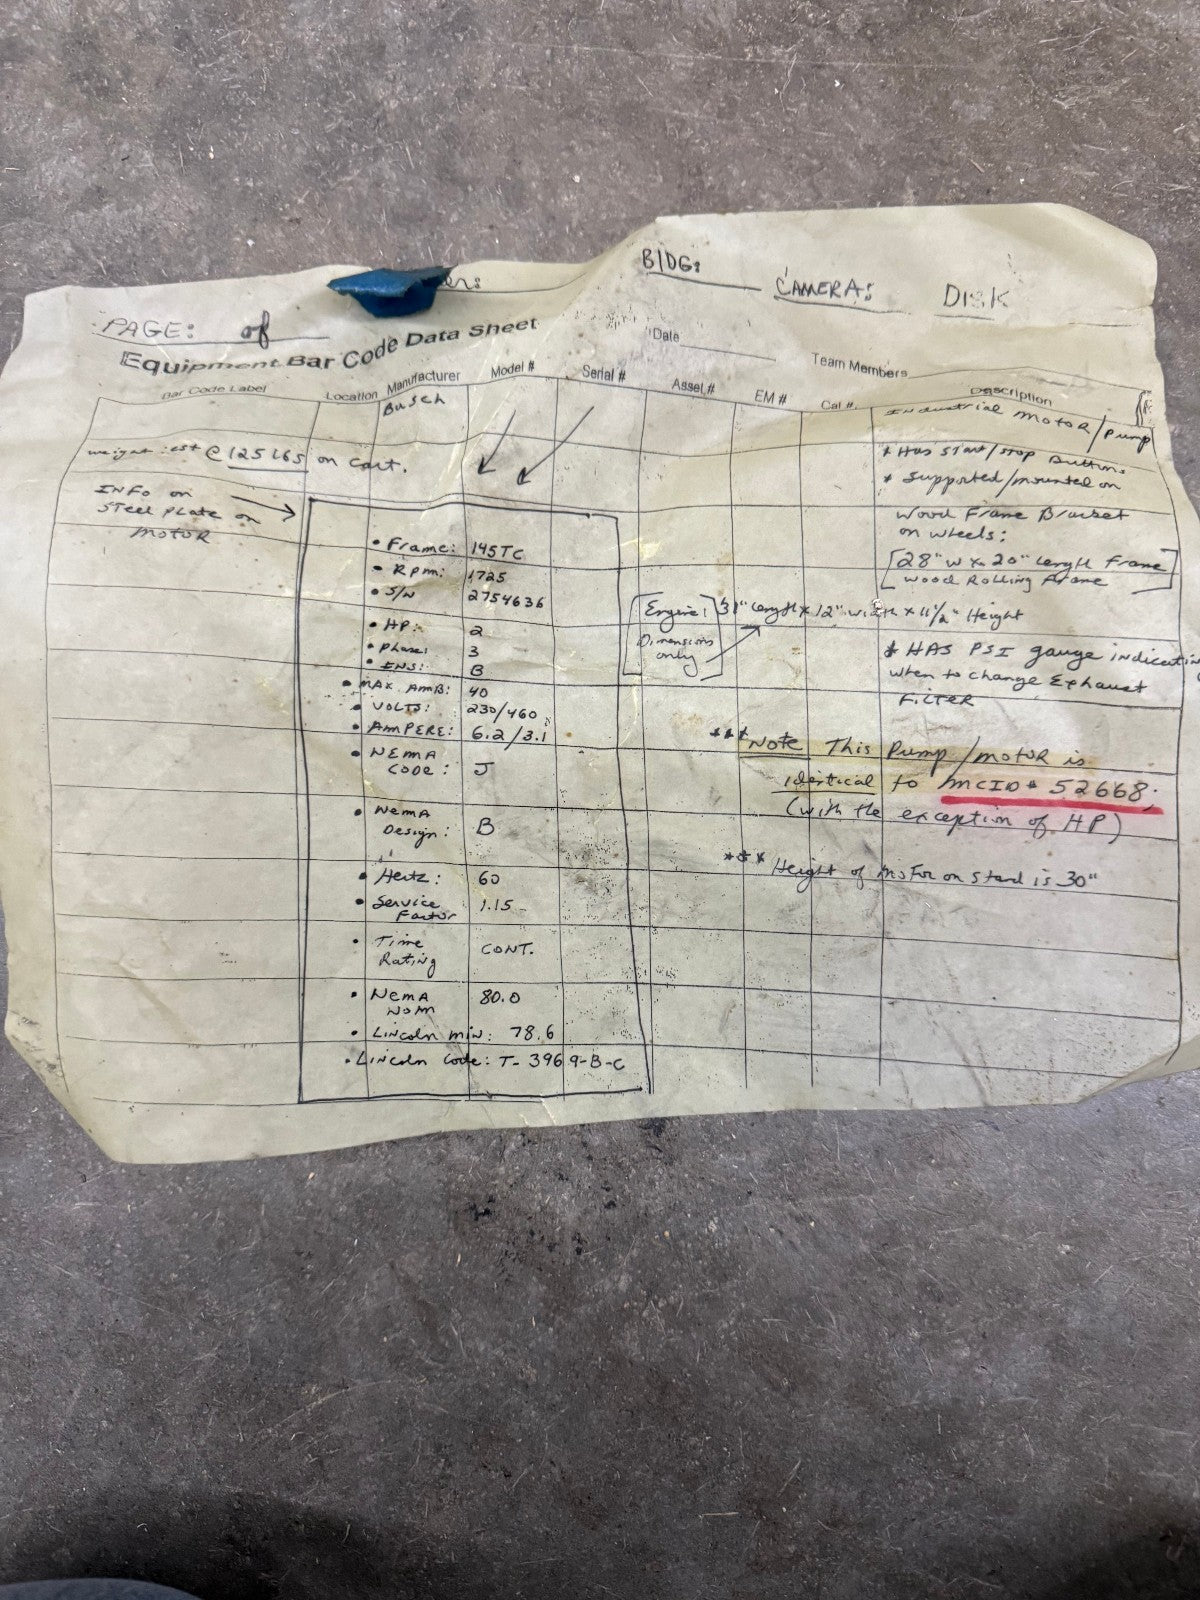 BLDG:
CAMERA:
DISK
PAGE: of
Equipment Bar Code Data Sheet
Date
Team Members
Bar Code Label Location Manufacturer Model # Serial # Asset # EM # Cal # Description
Busch
Industrial Motor/Pump
weight: est @ 125 Lbs on cart.
* Has Start/Stop Buttons
* Supported/mounted on
Wood Frame Bracket
on wheels:
[28" W x 20" Length Frame
Wood Rolling Frame]
INFO on
Steel Plate on
Motor
• Frame: 145TC
• Rpm: 1725
• S/N 2754636
• HP: 2
• Phase: 3
• INS: B
• MAX. AMB: 40
• VOLTS: 230/460
• AMPERE: 6.2/3.1
• NEMA
Code: J
• Nema
Design: B
• Hertz: 60
• Service
Factor 1.15
• Time
Rating CONT.
• Nema
Nom 80.0
• Lincoln min: 78.6
• Lincoln Code: T-3969-B-C
[Engine: 31" Length x 12" width x 11 1/2" Height
Dimensions
only]
* HAS PSI gauge indicating
when to change Exhaust
Filter
*** Note This Pump/motor is
identical to MCID# 52668;
(with the exception of HP)
*** Height of motor on stand is 30"